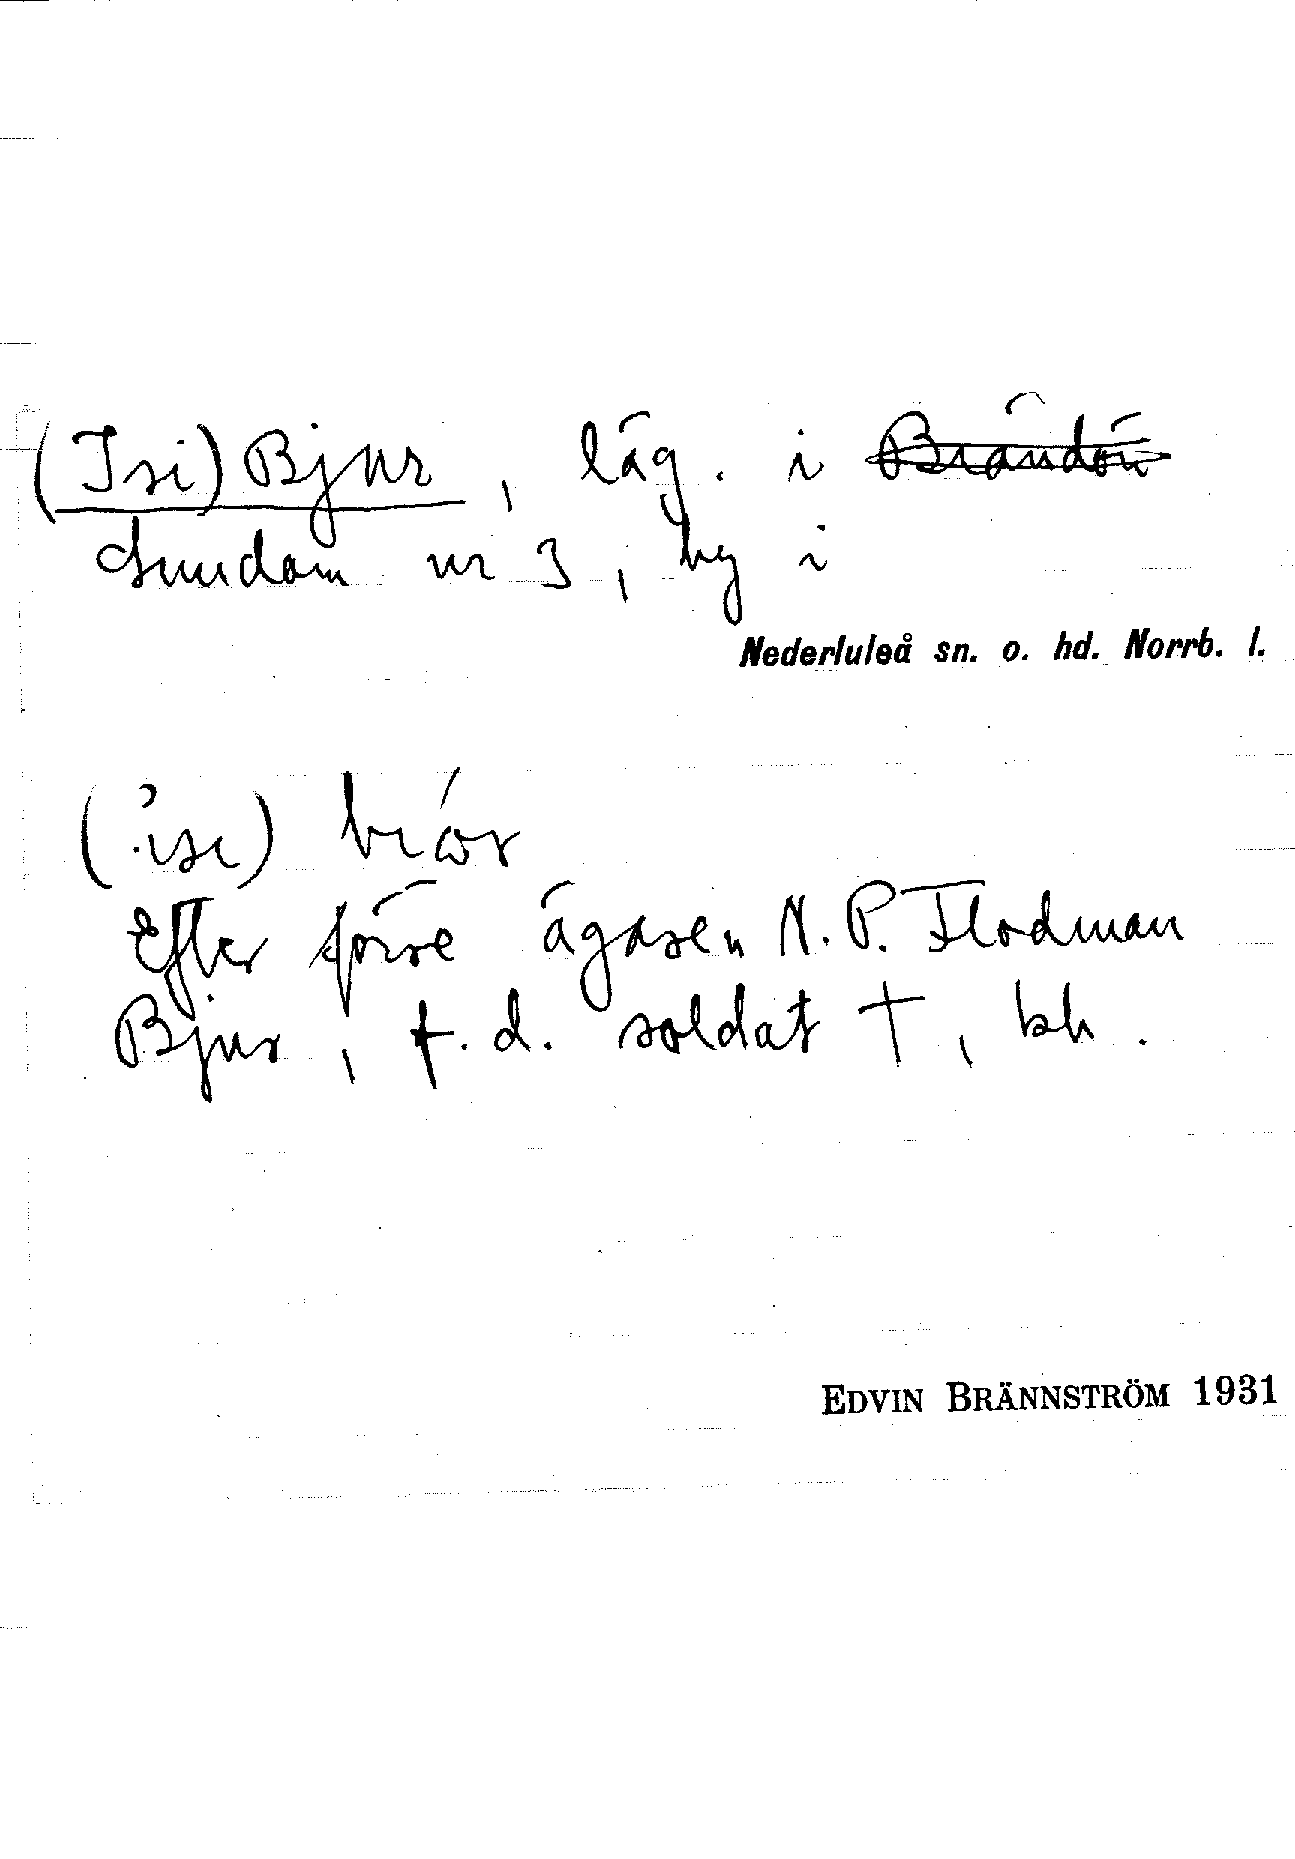 (Isi) Bjur, läg. i Brändön
Sundom nr 3, by i
Nederluleå sn. o. hd. Norrb. l.
Efter förre ägaren N. P. Flodman
Bjur, f. d. soldat †, bh.
EDVIN BRÄNNSTRÖM 1931